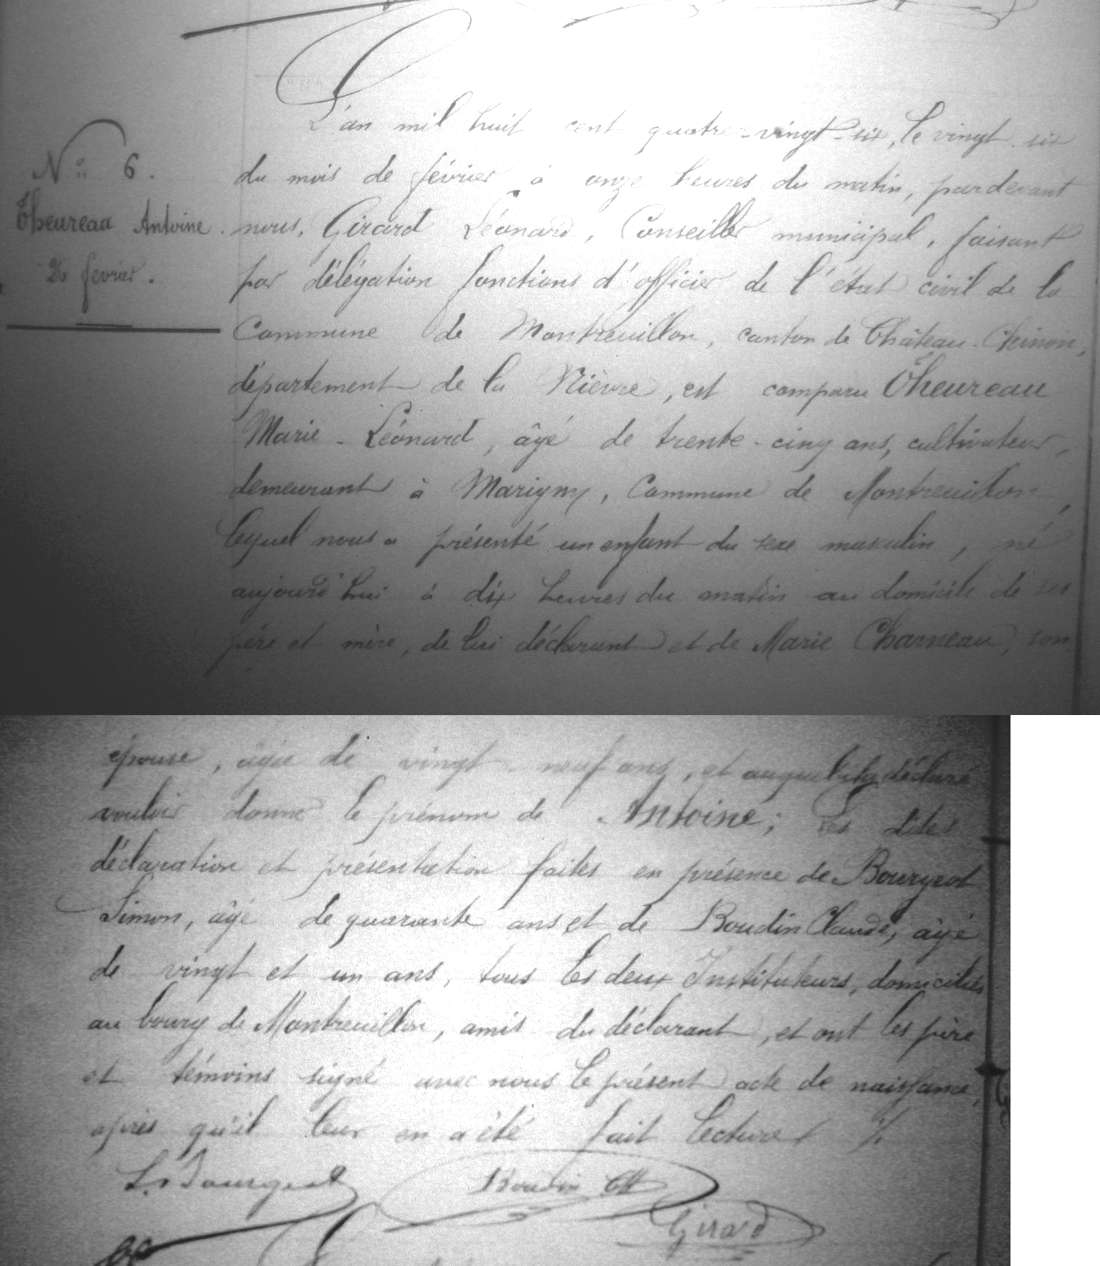 N° 6.
Theureau Antoine.
26 février.
L'an mil huit cent quatre-vingt-six, le vingt-six
du mois de février à onze heures du matin, pardevant
nous, Girard Léonard, Conseiller municipal, faisant
par délégation fonctions d'officier de l'état civil de la
Commune de Montreuillon, canton de Château-Chinon,
département de la Nièvre, est comparu Theureau
Marie-Léonard, âgé de trente-cinq ans, cultivateur,
demeurant à Marigny, Commune de Montreuillon,
lequel nous a présenté un enfant du sexe masculin, né
aujourd'hui à dix heures du matin au domicile de ses
père et mère, de lui déclarant et de Marie Charneau, son
épouse, âgée de vingt-neuf ans, et auquel il a déclaré
vouloir donner le prénom de Antoine; les dites
déclaration et présentation faites en présence de Bourgeot
Simon, âgé de quarante ans et de Boudin Claude, âgé
de vingt et un ans, tous les deux Instituteurs, domiciliés
au bourg de Montreuillon, amis du déclarant, et ont les père
et témoins signé avec nous le présent acte de naissance,
après qu'il leur en a été fait lecture ./.
S. Bourgeot Boudin Cl
Girard